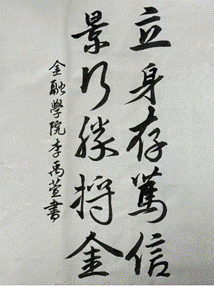 立身存篤信
景行勝將金
金融學院李禹萱書